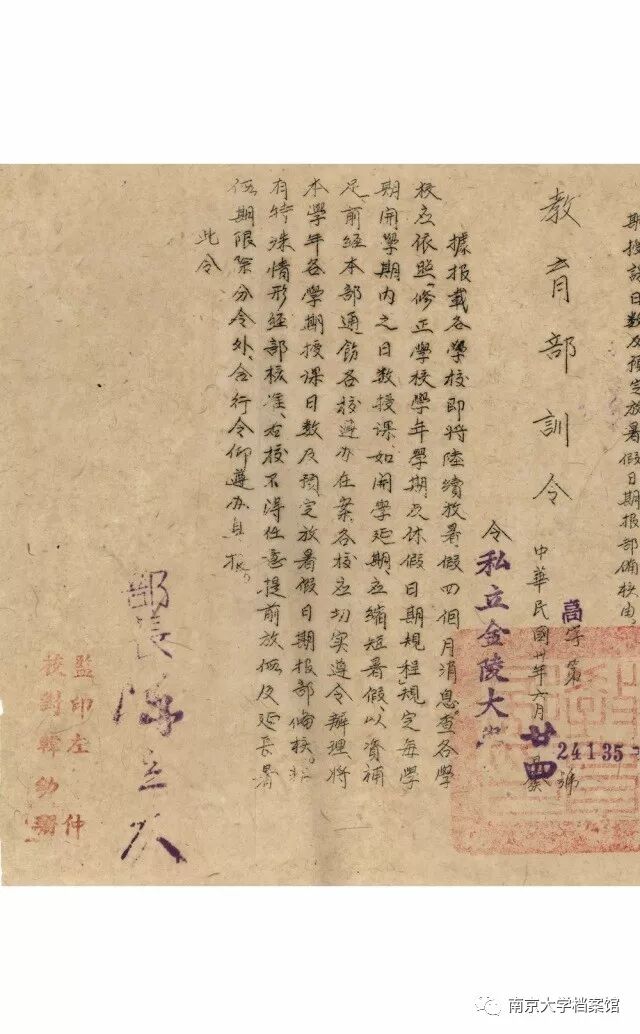 期授課日數及預定放暑假日期報部備核由。
教育部訓令
高字第24135號
中華民國卅年六月廿四日發
令私立金陵大學
據報載各學校即將陸續放暑假四個月消息查各學
校應依照「修正學校學年學期及休假日期規程」規定每學
期開學期內之日數授課如開學延期應縮短暑假以資補
足前經本部通飭各校遵办在案各校应切实遵令辦理將
本學年各學期授課日數及預定放暑假日期報部備核。非
有特殊情形經部核准、各校不得任意提前放假及延長暑
假期限除分令外、合行令仰遵办具報。
此令
部長陳立夫
監印左仲
校對韓幼
南京大学档案馆